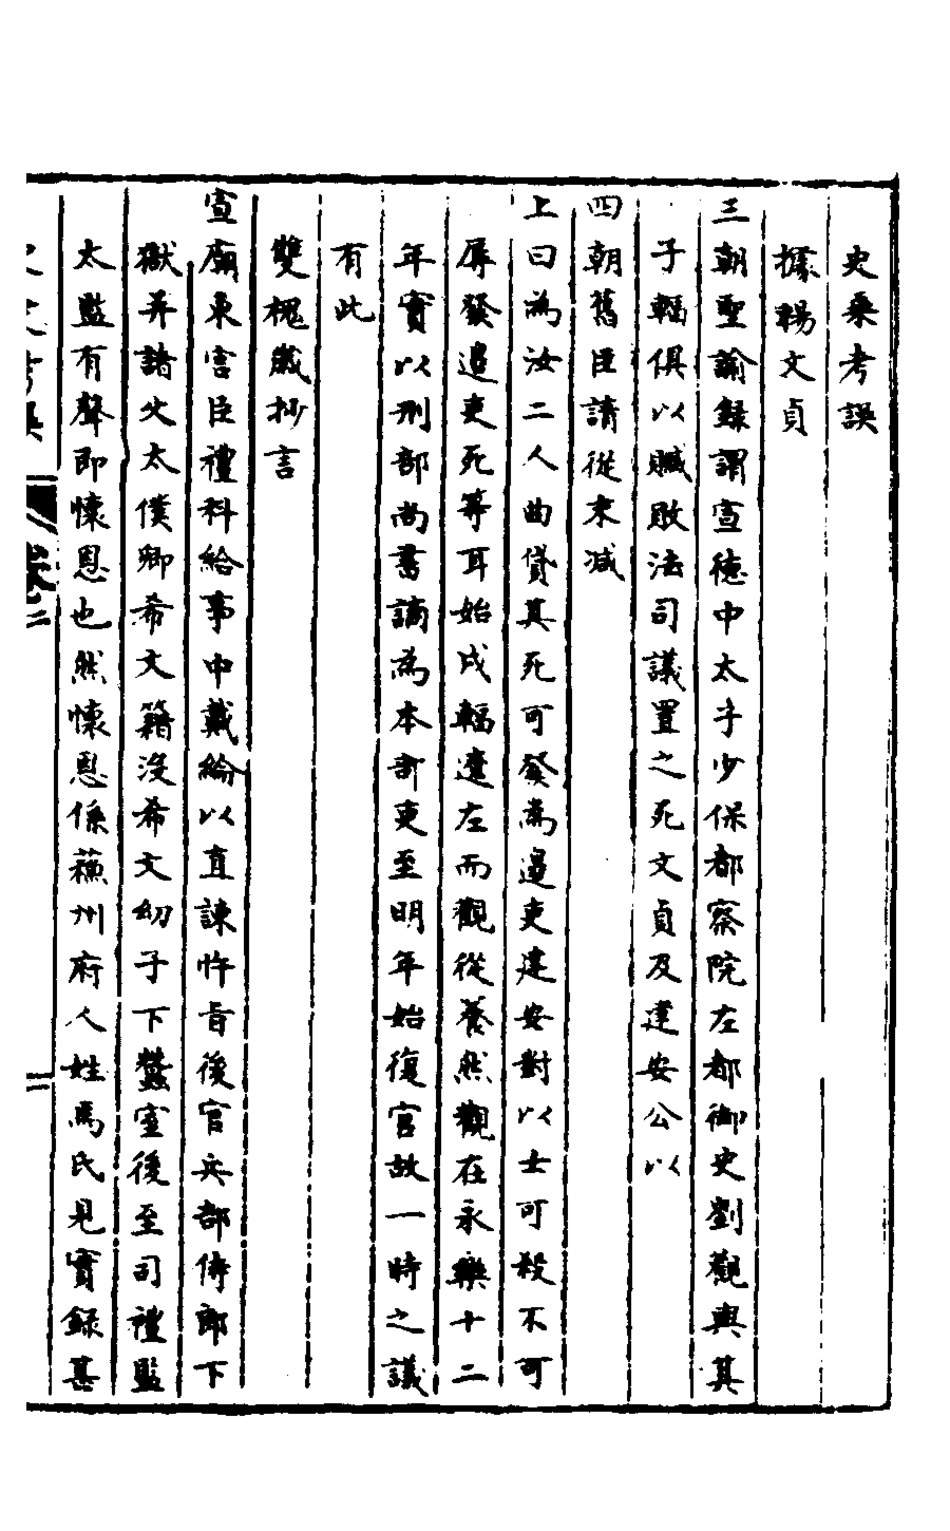 史乗考誤
據楊文貞
三朝聖諭録謂宣徳中太子少保都察院左都御史劉觀與其
子輻俱以贓敗法司議置之死文貞及建安公以
四朝舊臣請從末减
上曰為汝二人曲貸其死可發為邉吏建安對以士可殺不可
辱發邉吏死等耳始戍輻遼左而觀從養然觀在永樂十二
年實以刑部尚書謫為本部吏至明年始復官故一時之議
有此
雙槐歲抄言
宣廟東宫臣禮科給事中戴綸以直諫忤旨後官兵部侍郎下
獄并諸父太僕卿希文籍沒希文幼子下蠶室後至司禮監
太監有聲即懷恩也然懷恩係蘓州府人姓馬氏見實録甚
卷二
二